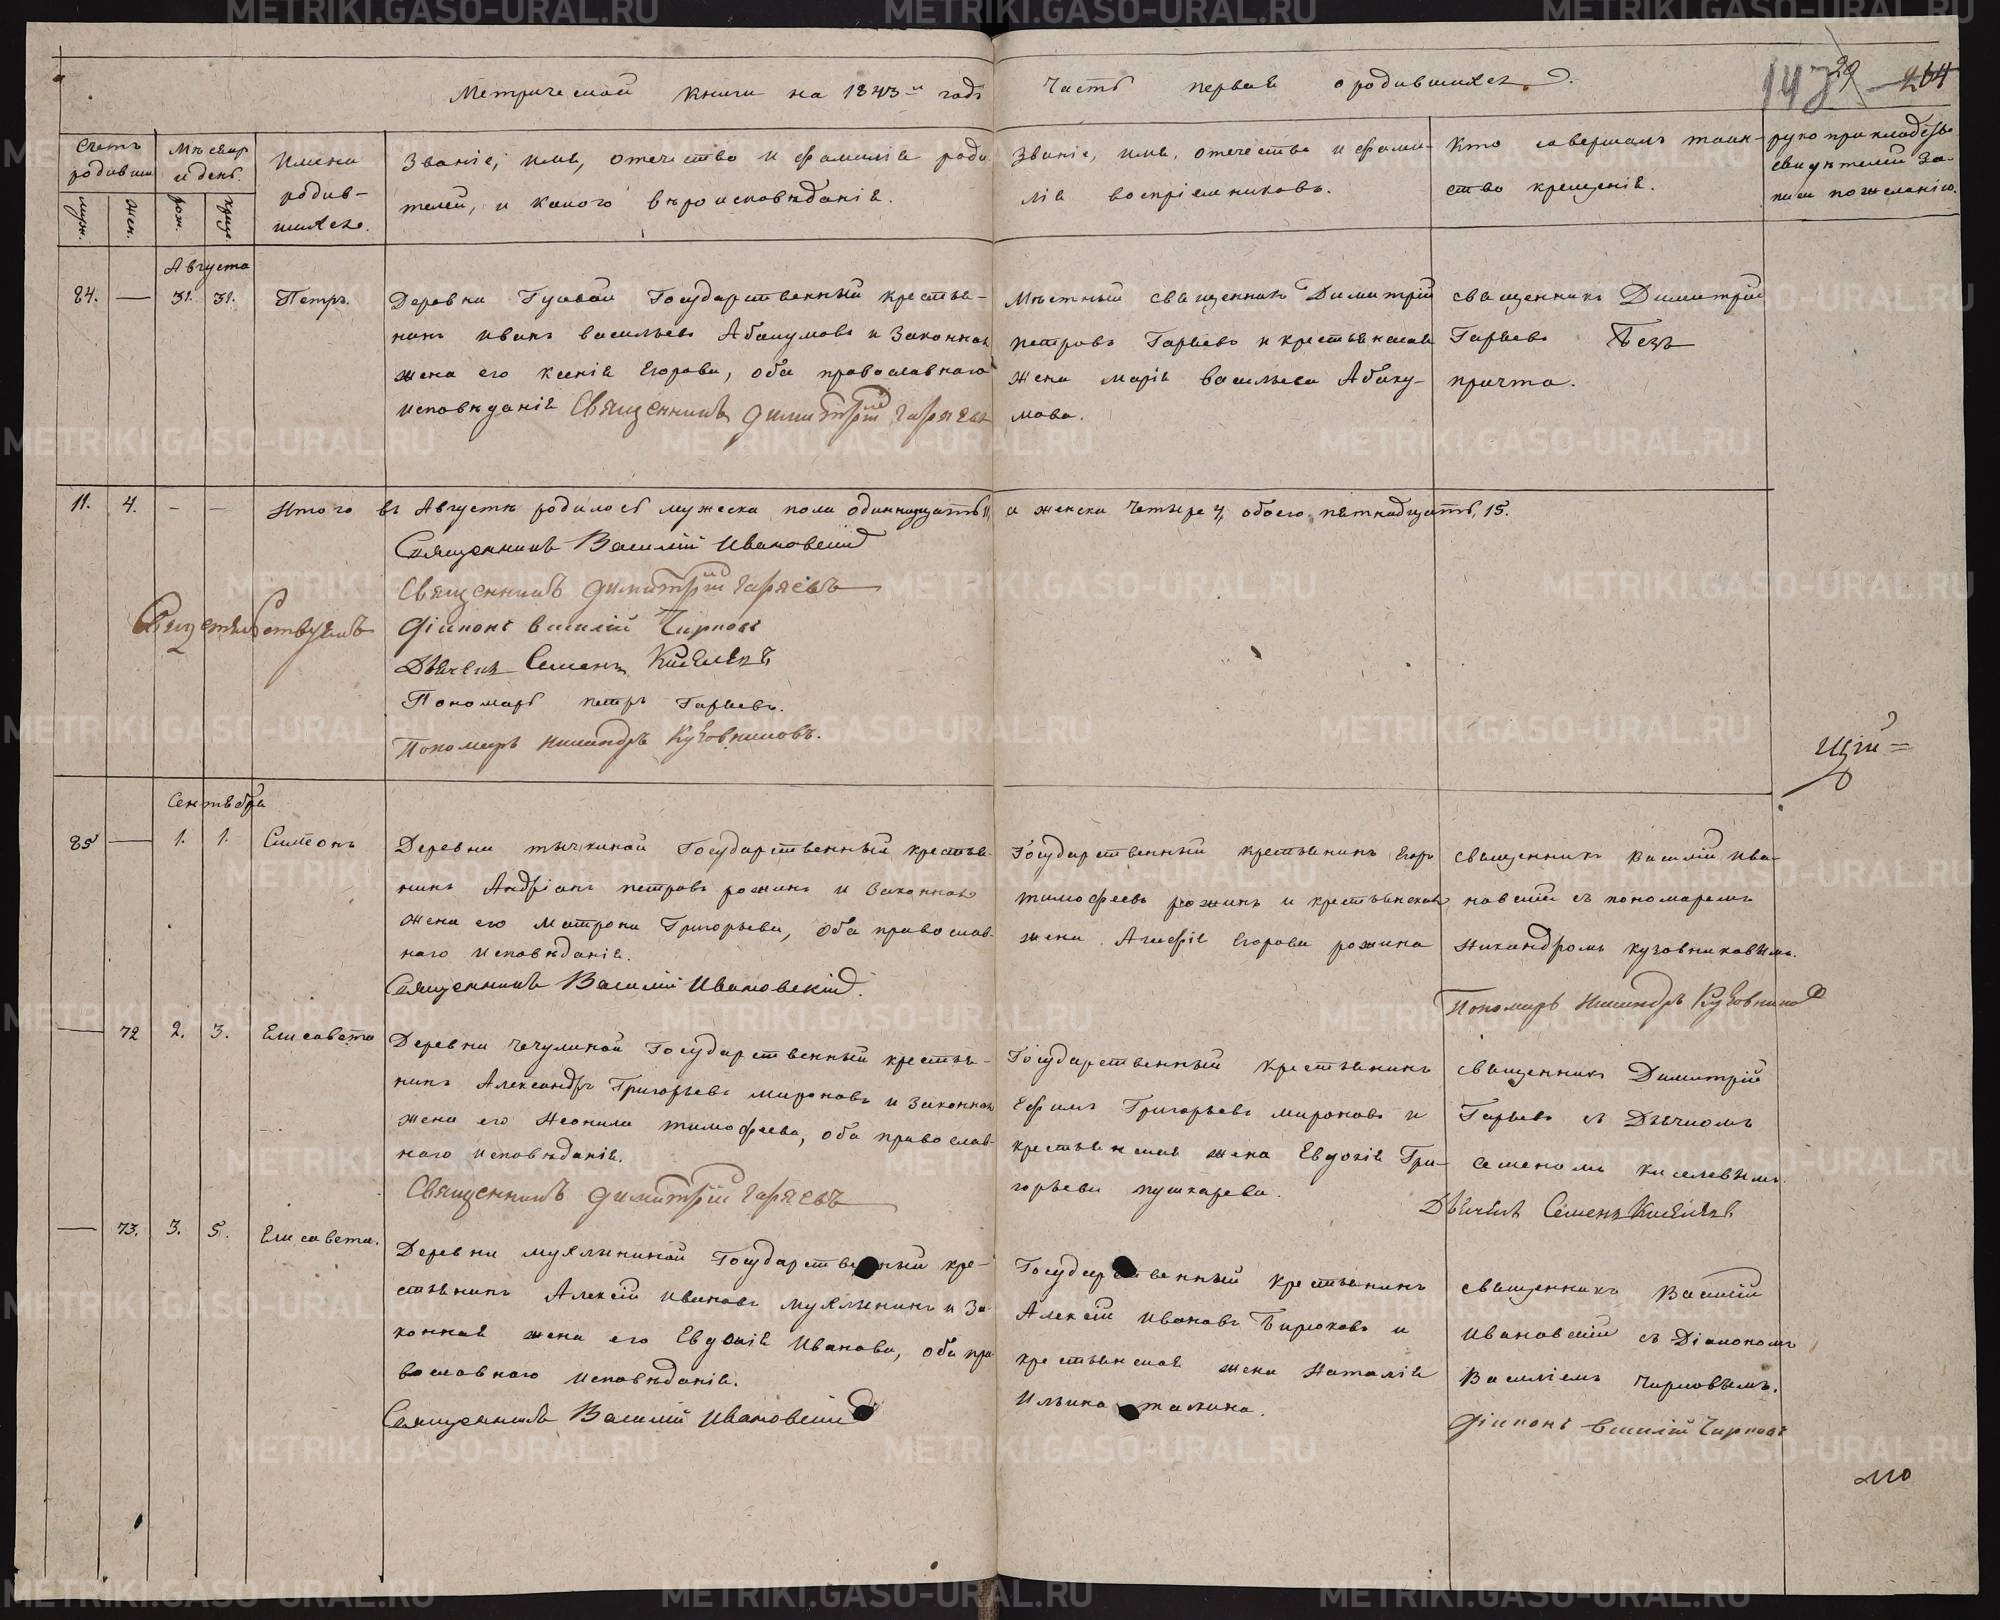 Метрической книги на 1843й годъ
Часть первая о родившихся.
147
29
264
Счетъ родивших
муж.
жен.
Мѣсяцъ и день.
рож.
крещ.
Имена родив-
шихся.
Званіе, имя, отечество и фамилія роди
телей, и какого вѣроисповѣданія.
Званіе, имя, отечество и фами-
лія воспріемниковъ.
Кто совершалъ таин-
ство крещенія.
рукоприкладство
свидѣтелей за-
писи по желанію.
Августа
84. — 31. 31. Петръ.
Деревни Гусевой Государственный крестья-
нинъ Иванъ Васильевъ Абакумовъ и Законная
жена его Ксенія Егорова, оба православнаго
исповѣданія Священникъ Димитрій Гаряевъ
Мѣстный священникъ Димитрій
Петровъ Гаряевъ и крестьянская
жена Марія Васильева Абаку-
мова.
Священникъ Димитрій
Гаряевъ Безъ
причта.
11. 4. — — Итого въ Августѣ родилось мужеска пола одиннадцать 11, а женска четыре 4, обоего пятнадцать, 15.
Священникъ Василій Ивановскій
Священникъ Димитрій Гаряевъ
Свидетельствуемъ
Діаконъ Василій Чирковъ
Дьячекъ Семенъ Киселевъ
Пономарь Петръ Гаряевъ.
Пономарь Никандръ Кузовниковъ.
щій
Сентября
85 — 1. 1. Симеонъ
Деревни Тычкиной Государственный крестья-
нинъ Андріанъ Петровъ Рожинъ и Законная
жена его Матрона Григорьева, оба православ-
наго исповѣданія.
Священникъ Василій Ивановскій.
Государственный крестьянинъ Егоръ
Тимофеевъ Рожинъ и крестьянская
жена Агафія Егорова Рожина
Священникъ Василій Ива-
новскій съ пономаремъ
Никандромъ Кузовниковымъ.
Пономарь Никандръ Кузовников
— 72 2. 3. Елисавета
Деревни Чечулиной Государственный крестья-
нинъ Александръ Григорьевъ Мироновъ и Законная
жена его Неонила Тимофеева, оба православ-
наго исповѣданія.
Священникъ Димитрій Гаряевъ
Государственный крестьянинъ
Ефимъ Григорьевъ Мироновъ и
крестьянская жена Евдокія Гри-
горьева Пушкарева.
Священникъ Димитрій
Гаряевъ съ Дьячкомъ
Семеномъ Киселевымъ.
Дьячекъ Семенъ Киселевъ
— 73. 3. 5. Елисавета.
Деревни Мухлыниной Государственный кре-
стьянинъ Алексій Ивановъ Мухлынинъ и За-
конная жена его Евдокія Иванова, оба пра
вославнаго исповѣданія.
Священникъ Василій Ивановскій
Государственный крестьянинъ
Алексій Ивановъ Бирюковъ и
крестьянская жена Наталія
Ильина
Священникъ Василій
Ивановскій съ Діакономъ
Василіемъ Чирковымъ.
Діаконъ Василій Чирковъ
METRIKI.GASO-URAL.RU